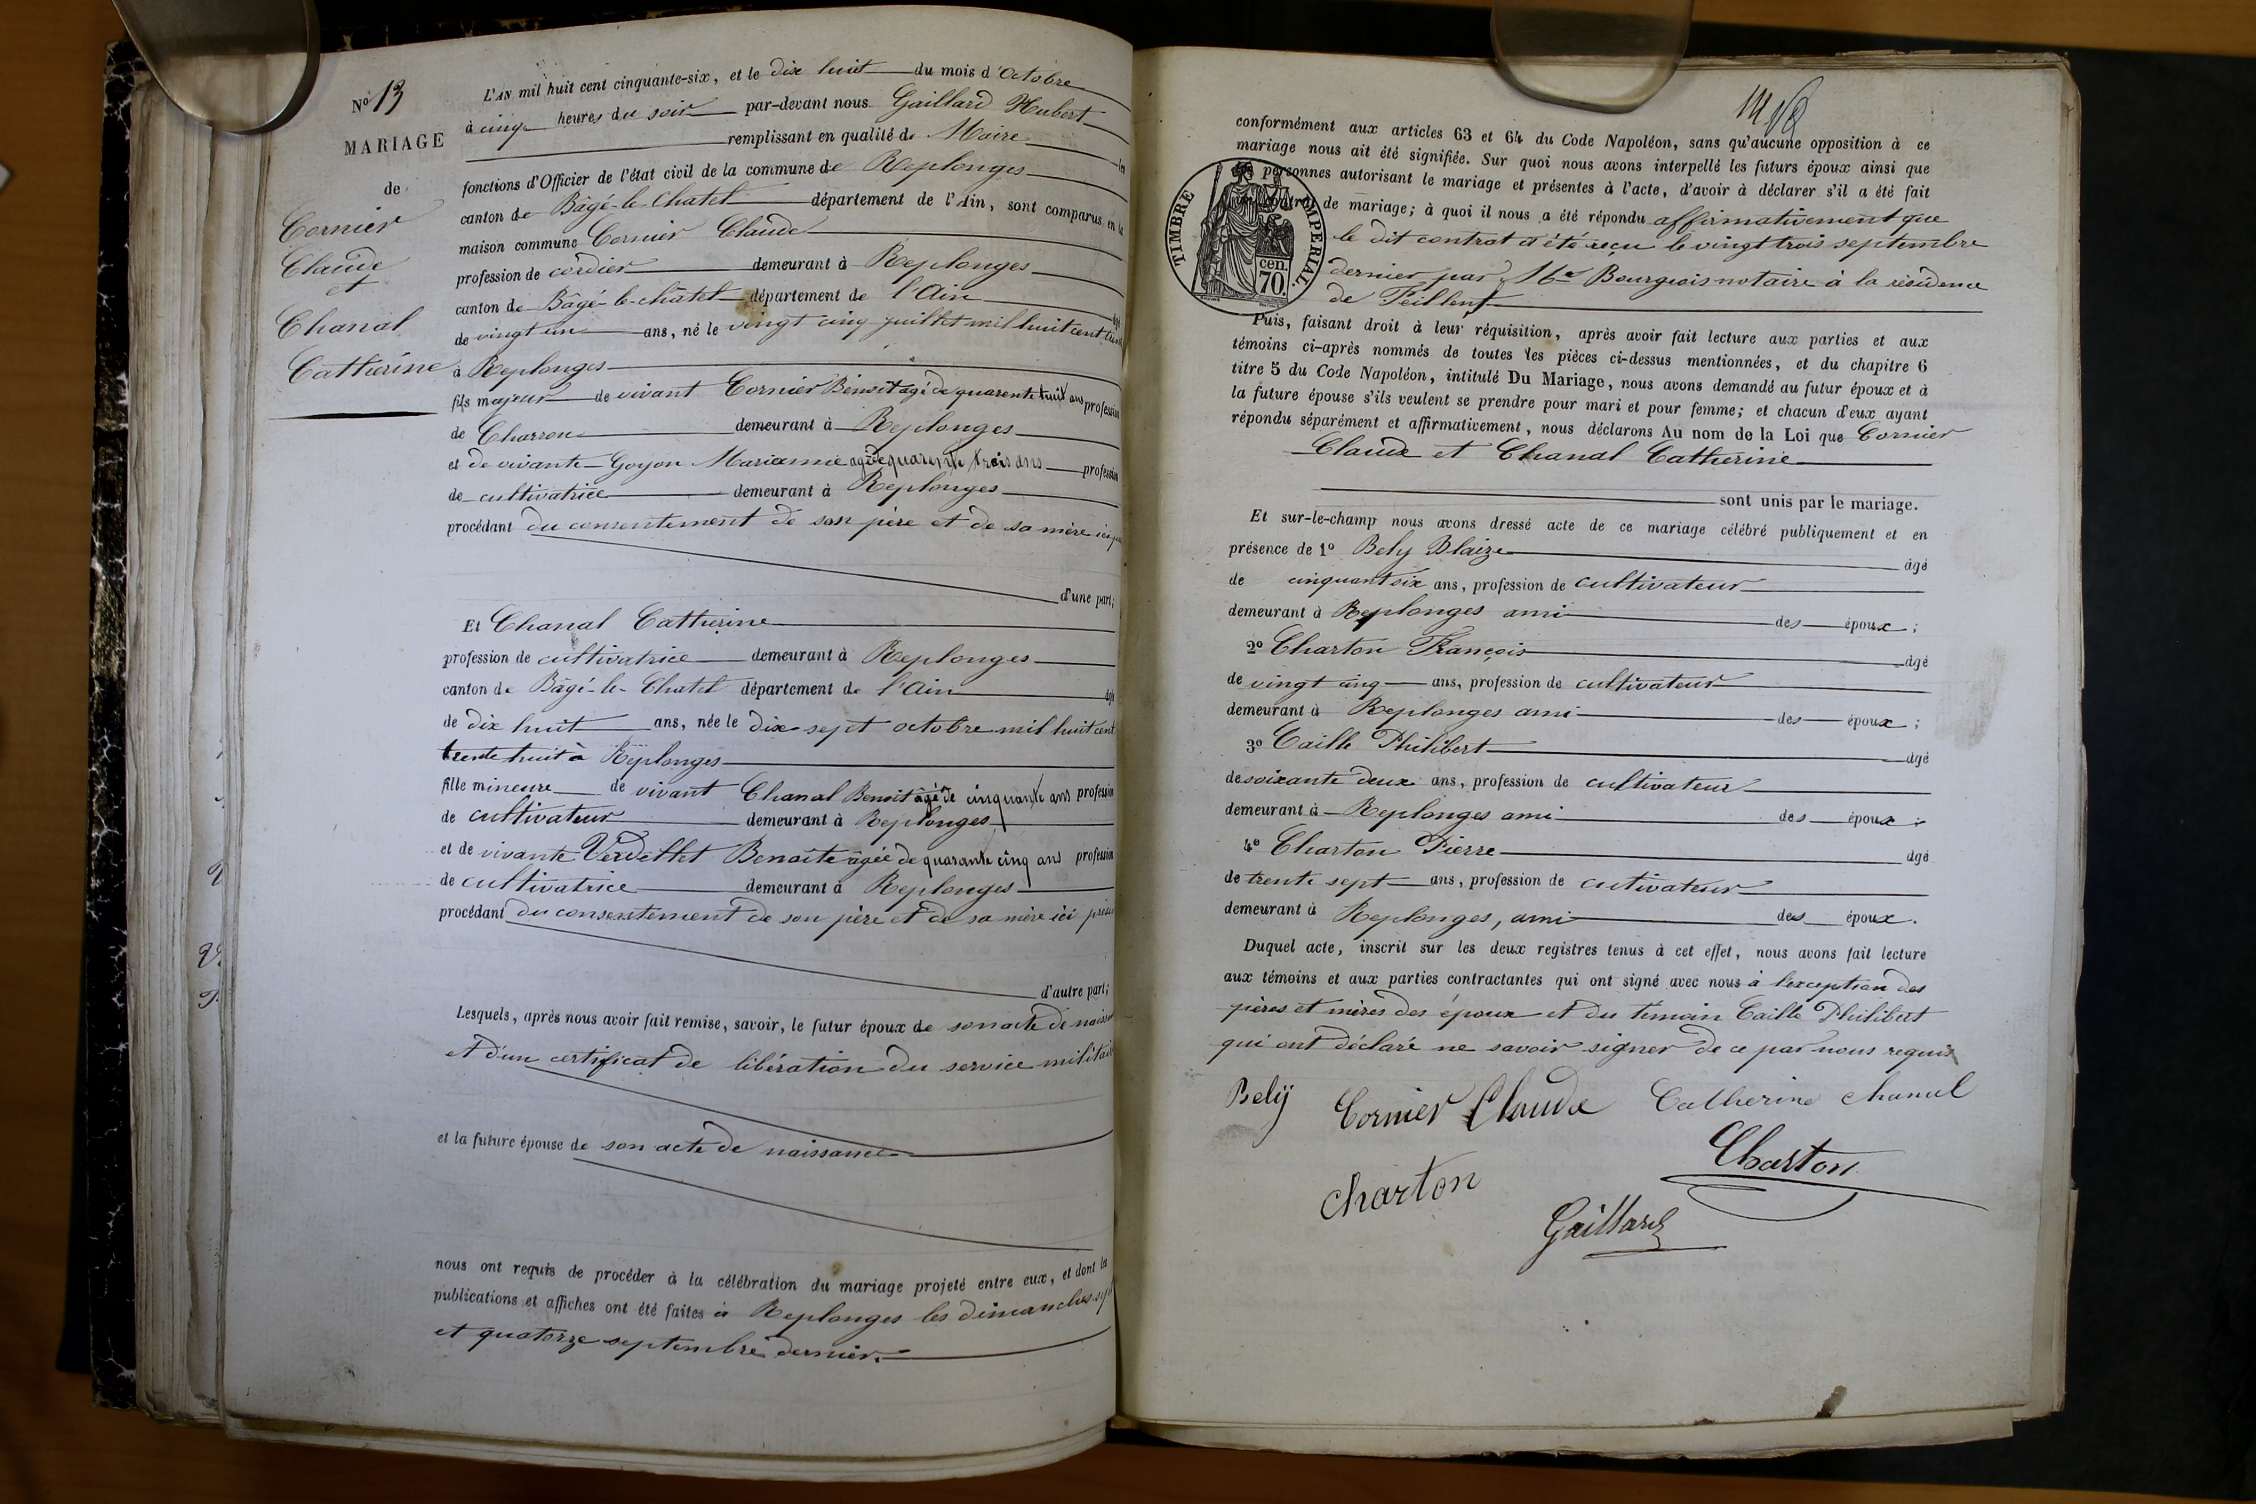 No 13
MARIAGE
de
Cornier
Claude
et
Chanal
Catherine
L'AN mil huit cent cinquante-six, et le dix huit du mois d'Octobre
à cinq heures du soir par-devant nous Gaillard Hubert
remplissant en qualité de Maire les
fonctions d'Officier de l'état civil de la commune de Replonges
canton de Bâgé-le-Chatel département de l'Ain, sont comparus en la
maison commune Cornier Claude
profession de cordier demeurant à Replonges
canton de Bâgé-le-châtel département de l'Ain âgé
de vingt un ans, né le vingt cinq juillet mil huit cent
à Replonges
fils majeur de vivant Cornier Benoit agé de quarente huit ans profession
de Charron demeurant à Replonges
et de vivante Goyon Marianne agée de quarente trois ans profession
de cultivatrice demeurant à Replonges
procédant du consentement de son père et de sa mère ici
d'une part;
Et Chanal Catherine
profession de cultivatrice demeurant à Replonges
canton de Bâgé-le-Chatel département de l'Ain âgée
de dix huit ans, née le dix-sept octobre mil huit cent
trente huit à Replonges
fille mineure de vivant Chanal Benoit âgé de cinquante ans profession
de cultivateur demeurant à Replonges
et de vivante Verdellet Benoite âgée de quarante cinq ans profession
de cultivatrice demeurant à Replonges
procédant du consentement de son père et de sa mère ici
d'autre part;
Lesquels, après nous avoir fait remise, savoir, le futur époux de son acte de
et d'un certificat de libération du service
et la future épouse de son acte de naissance
nous ont requis de procéder à la célébration du mariage projeté entre eux, et dont les
publications et affiches ont été faites à Replonges les dimanches
et quatorze septembre dernier.
conformément aux articles 63 et 64 du Code Napoléon, sans qu'aucune opposition à ce
mariage nous ait été signifiée. Sur quoi nous avons interpellé les futurs époux ainsi que
personnes autorisant le mariage et présentes à l'acte, d'avoir à déclarer s'il a été fait
de mariage; à quoi il nous a été répondu affirmativement que
le dit contrat a été reçu le vingt trois septembre
dernier par Me Bourgeois notaire à la résidence
de Feillens
TIMBRE IMPERIAL
cen.
70.
Puis, faisant droit à leur réquisition, après avoir fait lecture aux parties et aux
témoins ci-après nommés de toutes les pièces ci-dessus mentionnées, et du chapitre 6
titre 5 du Code Napoléon, intitulé Du Mariage, nous avons demandé au futur époux et à
la future épouse s'ils veulent se prendre pour mari et pour femme; et chacun d'eux ayant
répondu séparément et affirmativement, nous déclarons Au nom de la Loi que Cornier
Claude et Chanal Catherine
sont unis par le mariage.
Et sur-le-champ nous avons dressé acte de ce mariage célébré publiquement et en
présence de 1º Bely Blaize âgé
de cinquant six ans, profession de cultivateur
demeurant à Replonges ami des époux;
2º Charton François âgé
de vingt cinq ans, profession de cultivateur
demeurant à Replonges ami des époux;
3º Caille Philibert âgé
de soixante deux ans, profession de cultivateur
demeurant à Replonges ami des époux;
4º Charton Pierre âgé
de trente sept ans, profession de cutivateur
demeurant à Replonges, ami des époux.
Duquel acte, inscrit sur les deux registres tenus à cet effet, nous avons fait lecture
aux témoins et aux parties contractantes qui ont signé avec nous à l'exception des
pères et mères des époux et du témoin Caille Philibert
qui ont déclaré ne savoir signer de ce par nous requis
Bely Cornier Claude Catherine chanal
Charton
charton
Gaillard